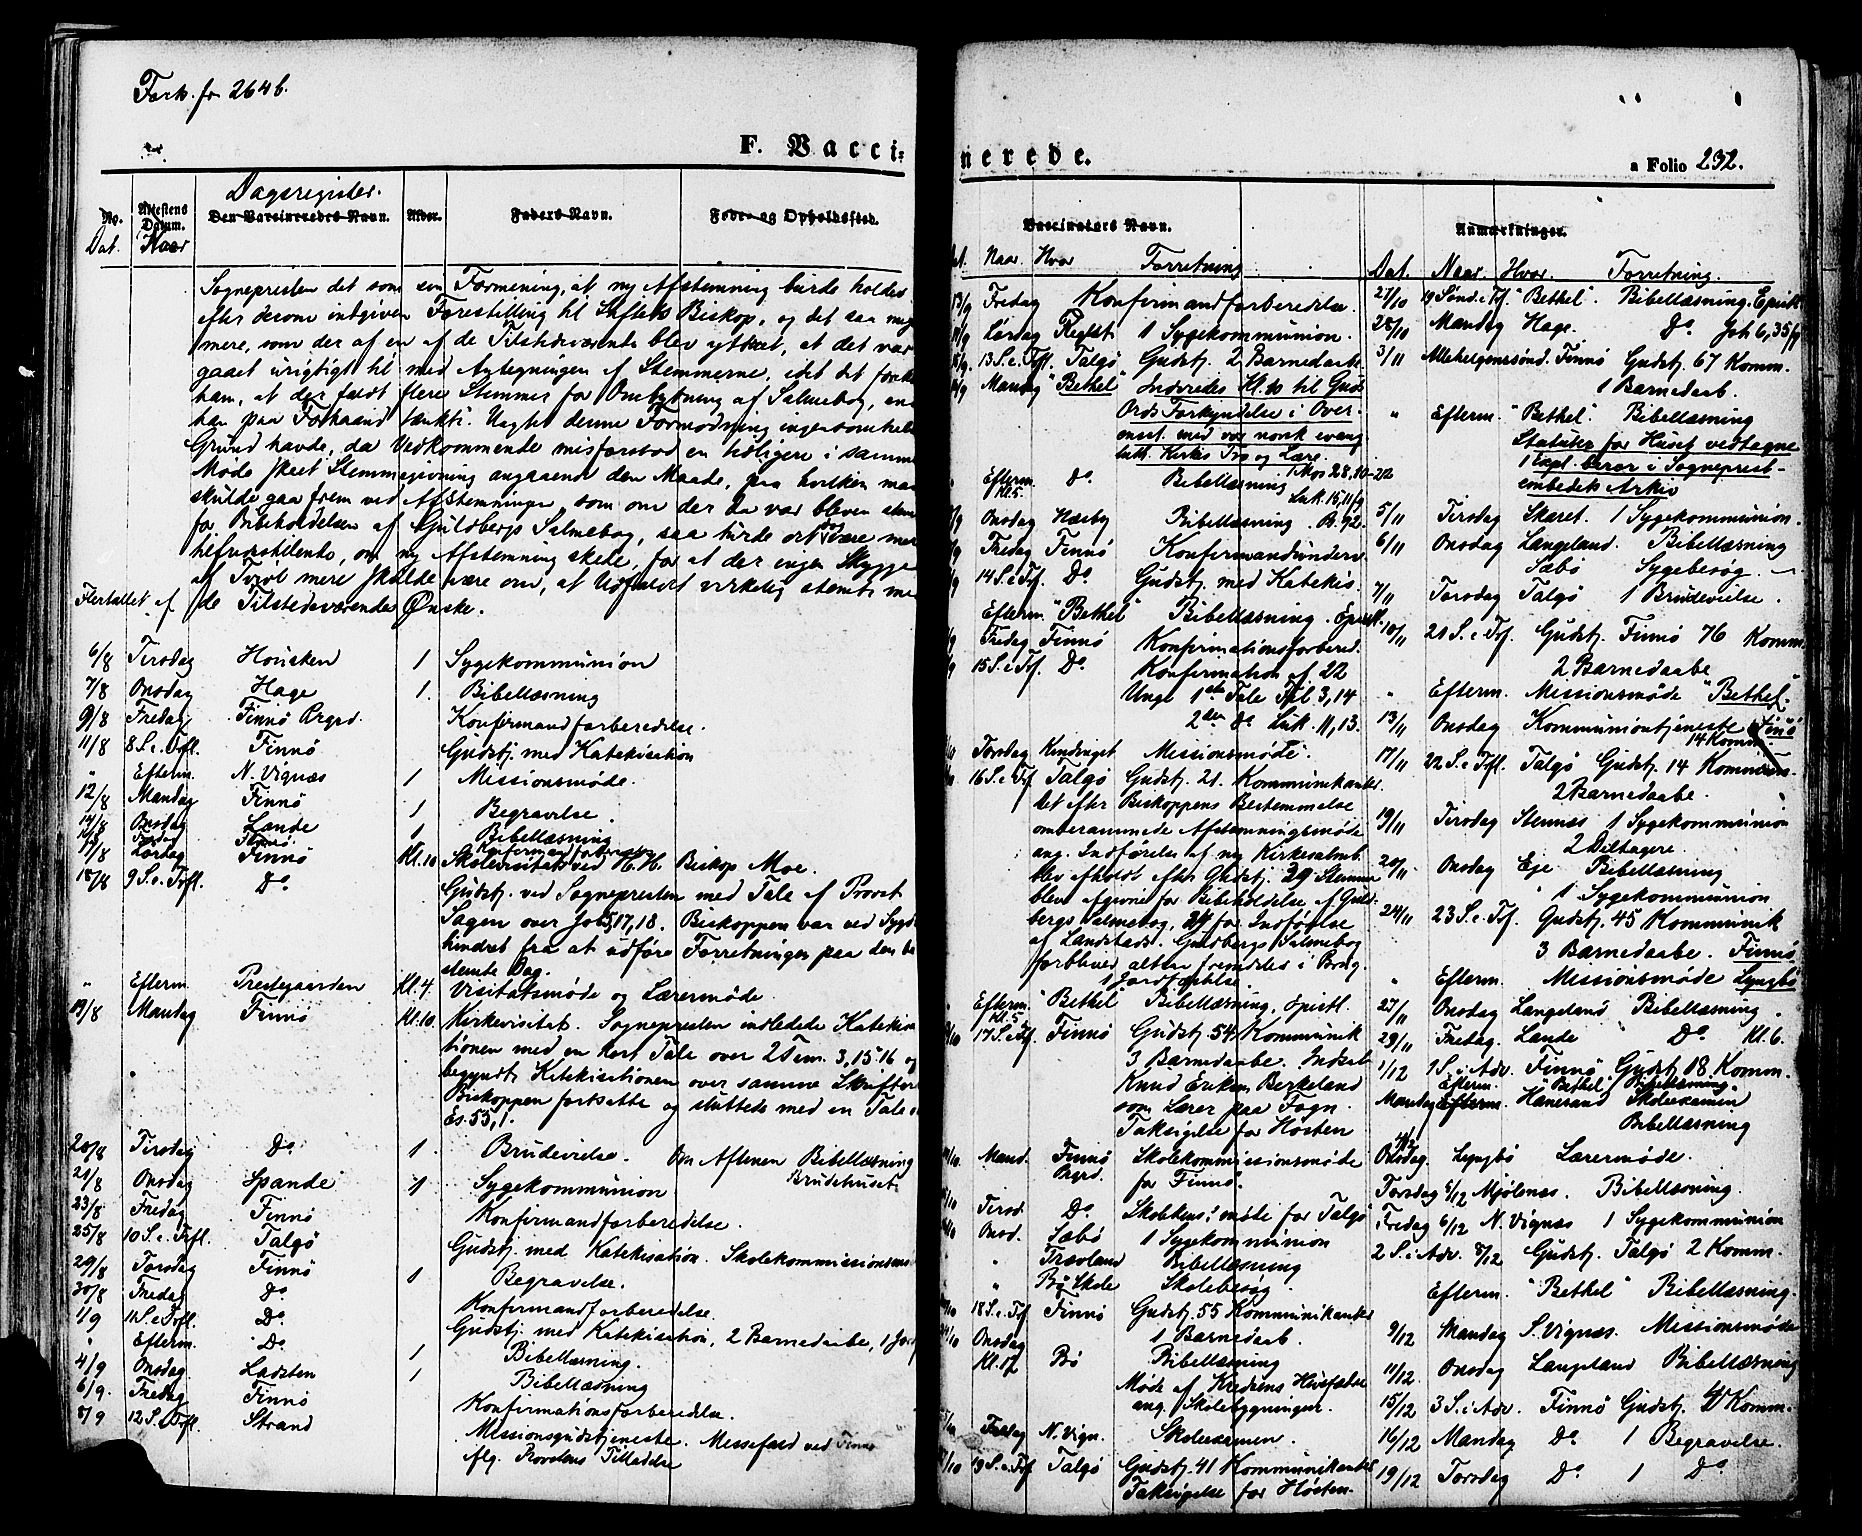 Forts. fr 264 b.
F. Vacci-
nerede.
a Folio 232.
Dagsregister.
No. Attestens Datum. Den Vaccineredes Navn. Alder. Faders Navn. Føde- og Opholdssted.
Dat. Naar
Vaccinators Navn. Anmærkninger.
Sognepresten det som sin Formening, at ny Afstemning burde holdes
efter derom indgiven Forestilling til Stiftets Biskop, og det saa meget
mere, som der af en af de Tilstedeværende blev ytret, at det var
gaaet urigtigt til med Antegningen af Stemmerne, idet det forekom
ham, at der faldt flere Stemmer for Ombytning af Salmebog, end
han paa Forhaand tænkte. Uagtet denne Formodning ingensomhelst
Grund havde, da Vedkommende misforstod en tidligere i samme
Møde skeet Stemmegivning angaaende den Maade, paa hvilken man
skulde gaa frem ved Afstemningen, som om der da var bleven stemt
for Bibeholdelsen af Guldbergs Salmebog, saa turde det være mest
tilfredsstillende, om ny Afstemning skede, for at der ingen Skygge
af Tvivl mere skulde være om, at Udfaldet virkelig stemte med
Flertallet af de Tilstedeværendes Ønske.
6/8 Tirsdag Housken 1 Sygekommunion
7/8 Onsdag Hage 1. Bibellæsning
9/8 Fredag Finnø Prgrd. Konfirmandforberedelse.
11/8 8 S. e. Trfl. Finnø Gudstj. med Katekisation
" Efterm. N. Vignæs 1 Missionsmøde.
12/8 Mandag Finnø 1 Begravelse.
14/8 Onsdag Lande 1 Bibellæsning
Fredag Finnø Konfirmandforberedelse
17/8 Lørdag Finnø Kl. 10 Skolevisitats ved H. H. Biskop Moe.
18/8 9 S. e. Trfl. Do Gudstj. ved Sognepresten med Tale af Provst
Sagen over Joh 5,17,18. Biskoppen var ved Sygd.
hindret fra at udføre Forretningen paa den be
stemte Dag.
" Efterm. Prestegaarden Kl. 4. Visitatsmøde og Lærermøde.
19/8 Mandag Finnø Kl. 10. Kirkevisitat. Sognepresten indledede Katekisa
tionen med en kort Tale over 2 Tim. 3, 15. 16 og
begyndte Katekisationen over samme Skriftord
Biskoppen fortsatte og sluttede med en Tale o
Es. 55, 1.
20/8 Tirsdag Do 1. Brudevielse. Om Aftenen Bibellæsning
Brudehuset.
21/8 Onsdag Spande 1 Sygekommunion
23/8 Fredag Finnø Konfirmandforberedelse.
25/8 10 S. e. Trfl. Talgø Gudstj. med Katekisation. Skolekommissionsmø
29/8 Torsdag Finnø 1 Begravelse.
30/8 Fredag Do Konfirmandforberedelse.
1/9 11 S. e. Trfl. Do Gudstj. med Katekisation, 2 Barnedaabe, 1 Jordf
" Efterm. Do 1 Bibellæsning.
4/9 Onsdag Ladsten 1 Bibellæsning
6/9. Fredag Finnø Konfirmationsforberedelse.
8/9 12 S. e. Trfl. Strand Missionsgudstjeneste. Messefald ved Finnø
flg. Provstens Tilladelse
Naar Hvor Forretning
13/9 Fredag Konfirmandforberedelse
14/9 Lørdag 1 Sygekommunion.
15/9. 13 S. e. Trfl. Talgø Gudstj. 2 Barnedaabe
16/9 Mandag "Bethel" Indviedes Kl. 10 til Guds
Ords Forkyndelse i Over-
enst. med vor norsk evang
luth. Kirkes Tro og Lære.
" Efterm. Kl. 5. Do Bibellæsning 1 Mos 28, 10-22
Luk. 15, 11 flg
Onsdag Næsby Bibellæsning.
Fredag Finnø Konfirmandunderv.
14 S. e. Trf. Do Gudstj. med Katekis.
Efterm. "Bethel" Bibellæsning. Epistl.
Fredag Finnø Konfirmationsforbered.
15 S. e. Trf. Do Konfirmation af 22
Unge 1ste Tale Fil. 3, 14
2den Do Luk. 11, 13.
Torsdag Kindinget Missionsmøde.
16 S. e. Trf. Talgø Gudstj. 21. Kommunikanter
Det efter Biskoppens Bestemmelse
omberammede Afstemningsmøde
ang. Indførelse af ny Kirkesalmb.
blev afholdt efter Gudstj. 29 Stemmer
blev afgivne for Bibeholdelse af Guld-
bergs Salmebog, 24 for Indførelse
af Landstads. Guldbergs Salmebog
forblived altsaa fremdeles i Brug.
1 Jordfæstelse.
Efterm. Kl. 5. "Bethel" Bibellæsning, Epistl.
17 S. e. Trf. Finnø Gudstj. 54 Kommunik
3 Barnedaabe. Indsat
Knud Eriksen Berkeland
som Lærer paa Fogn.
Taksigelse for Høsten
Mand. Finnø Prgrd. Skolekommissionsmøde
for Finnø.
Tirsd. Do Skolekoms. møde for Talgø
Onsd. Sæbø 1 Sygekommunion
" Træoland Bibellæsning
" Bø Skole Skolebesøg.
18 S. e. Trf. Finnø Gudstj. 55 Kommunikanter
1 Barnedaab.
Onsdag Bø Bibellæsning
Møde af Kredsens Husfædre
ang. Skolebygningen.
Fredag N. Vign. Skoleexamen.
19 S. e. Trf. Talgø Gudstj. 41 Kommunikanter
Taksigelse for Høsten.
Dat. Naar Hvor. Forretning.
27/10 19 Sønd. e. Trf. "Bethel". Bibellæsning. Epistl
28/10 Mandag Hage. Do. Joh 6, 35 flg
3/11 Allehelgenssønd. Finnø Gudstj. 67 Komm.
1 Barnedaab.
" Efterm. "Bethel" Bibellæsning
Statuter for Huset vedtagne
1 Expl. beror i Sogneprest-
embedets Arkiv
5/11 Tirsdag Skaret. 1 Sygekommunion.
6/11 Onsdag Langeland. Bibellæsning
Sæbø Sygebesøg.
7/11 Torsdag Talgø 1 Brudevielse.
10/11 21 S. e. Trf. Gudstj. Finnø 76 Komm
2 Barnedaabe
" Efterm. Missionsmøde "Bethel".
13/11 Onsdag Kommuniontjeneste Finnø
14 Komm.
17/11 22 S. e. Trfl. Talgø Gudstj. 14 Kommun.
2 Barnedaabe.
19/11 Tirsdag Stennæs 1 Sygekommunion
2 Deltagere.
20/11 Onsdag Eje Bibellæsning
1 Sygekommunion
24/11 23 S. e. Trf. Gudstj. 45 Kommunik
3 Barnedaabe. Finnø
" Efterm. Missionsmøde Lyngbø
27/11 Onsdag Langeland Bibellæsning.
29/11 Fredag. Lande Do Kl. 6.
1/12 1 S. i Adv. Finnø Gudstj 18 Komm.
Efterm. "Bethel" Bibellæsning.
Mandag Efterm. Hanesand Skoleexamen
Bibellæsning
4/12 Onsdag. Lyngbø Lærermøde.
Torsdag 5/12 Mjølsnæs. Bibellæsning.
Fredag 6/12 N. Vignæs 1 Sygekommunion
2 S. i Adv. 8/12 Gudstj. Talgø 2 Komm.
Efterm. "Bethel" Bibellæsning.
9/12 Mandag S. Vignæs. Missionsmøde
11/12 Onsdag Langeland Bibellæsning
15/12 3 S. i Adv. Finnø Gudstj. Komm.
16/12 Mandag Do 1 Begravelse.
19/12 Torsdag Do 1 Do